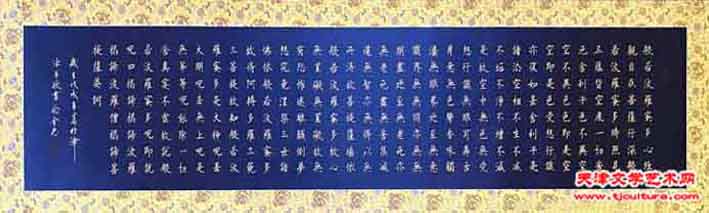 般若波羅蜜多心經
觀自在菩薩行深般
若波羅蜜多時照見
五蘊皆空度一切苦
厄舍利子色不異空
空不異色色即是空
空即是色受想行識
亦復如是舍利子是
諸法空相不生不滅
不垢不淨不增不減
是故空中無色無受
想行識無眼耳鼻舌
身意無色聲香味觸
法無眼界乃至無意
識界無無明亦無無
明盡乃至無老死亦
無老死盡無苦集滅
道無智亦無得以無
所得故菩提薩埵依
般若波羅蜜多故心
無罣礙無罣礙故無
有恐怖遠離顛倒夢
想究竟涅槃三世諸
佛依般若波羅蜜多
故得阿耨多羅三藐
三菩提故知般若波
羅蜜多是大神咒是
大明咒是無上咒是
無等等咒能除一切
苦真實不虛故說般
若波羅蜜多咒即說
咒曰揭諦揭諦波羅
揭諦波羅僧揭諦菩
提薩婆訶
天津文学艺术网
www.tjcultura.com